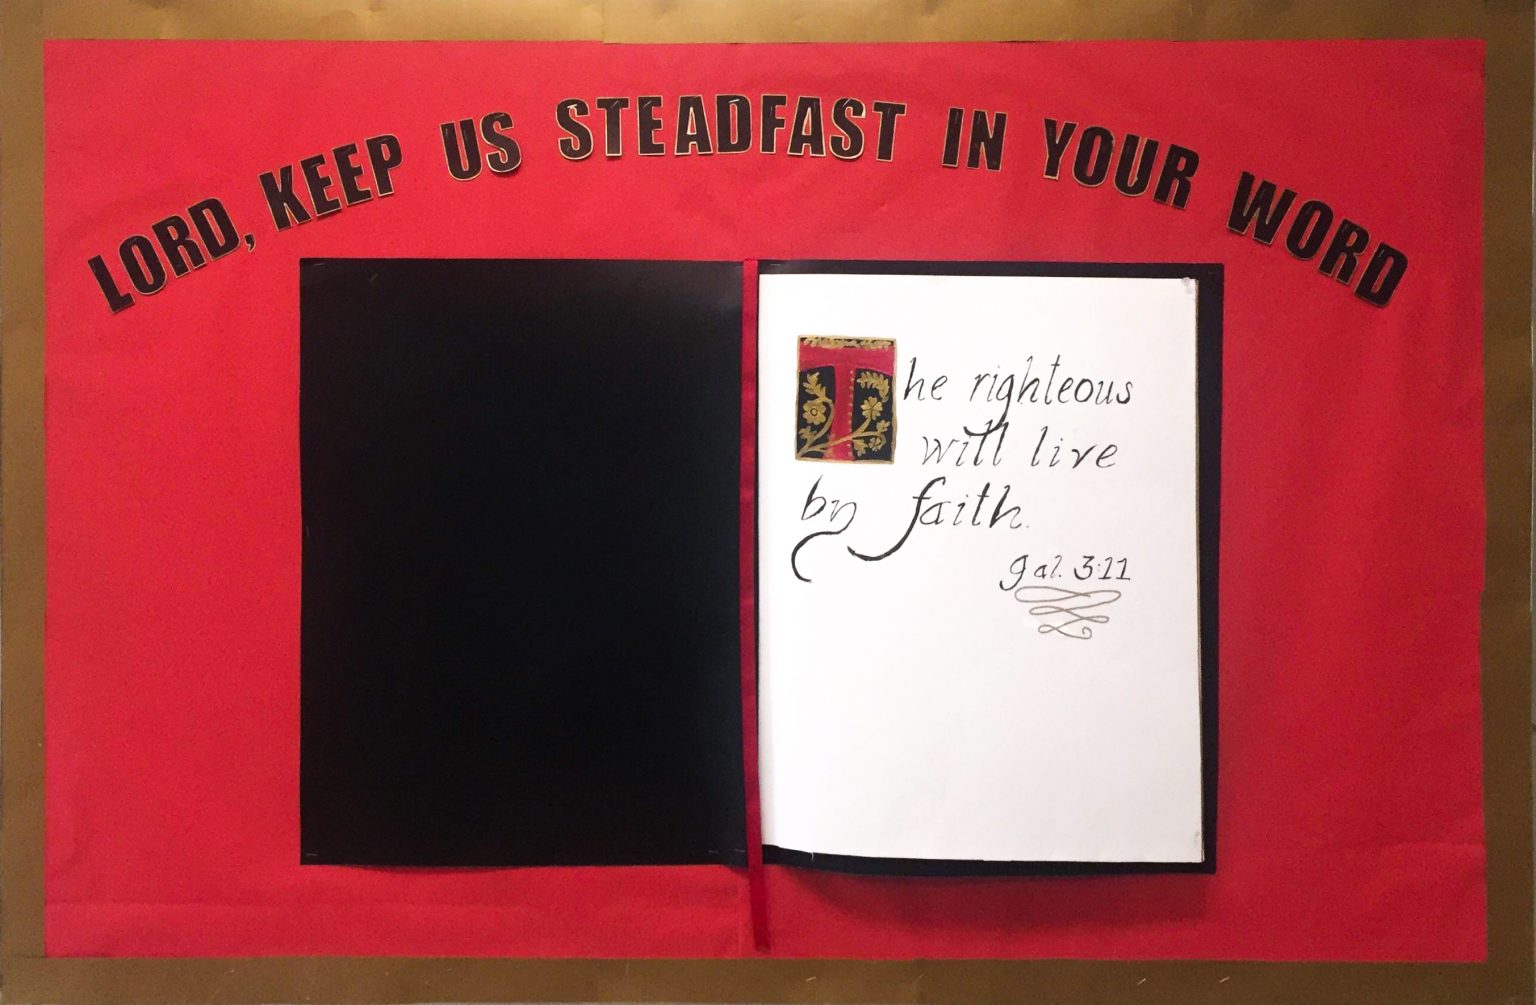 LORD, KEEP US STEADFAST IN YOUR WORD
The righteous
will live
by faith.
gal. 3:11